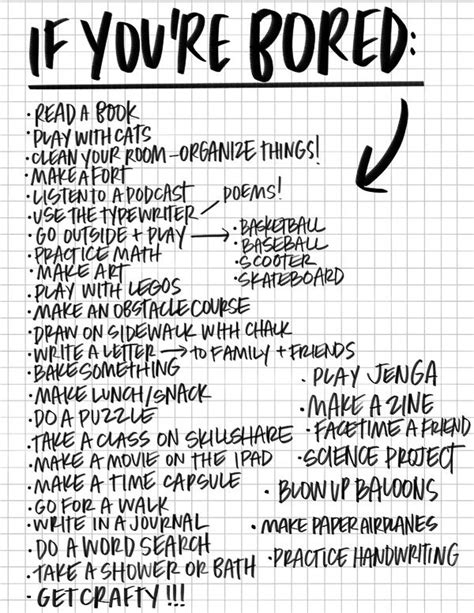 IF YOU'RE BORED:
• READ A BOOK
• PLAY WITH CATS
• CLEAN YOUR ROOM - ORGANIZE THINGS!
• MAKE A FORT
• LISTEN TO A PODCAST
• USE THE TYPEWRITER / POEMS!
• GO OUTSIDE + PLAY → • BASKETBALL
• BASEBALL
• SCOOTER
• SKATEBOARD
• PRACTICE MATH
• MAKE ART
• PLAY WITH LEGOS
• MAKE AN OBSTACLE COURSE
• DRAW ON SIDEWALK WITH CHALK
• WRITE A LETTER → TO FAMILY + FRIENDS
• BAKE SOMETHING
• MAKE LUNCH/SNACK
• DO A PUZZLE
• TAKE A CLASS ON SKILLSHARE
• MAKE A MOVIE ON THE IPAD
• MAKE A TIME CAPSULE
• GO FOR A WALK
• WRITE IN A JOURNAL
• DO A WORD SEARCH
• TAKE A SHOWER OR BATH
• GET CRAFTY!!!
• PLAY JENGA
• MAKE A ZINE
• FACETIME A FRIEND
• SCIENCE PROJECT
• BLOW UP BALOONS
• MAKE PAPER AIRPLANES
• PRACTICE HANDWRITING